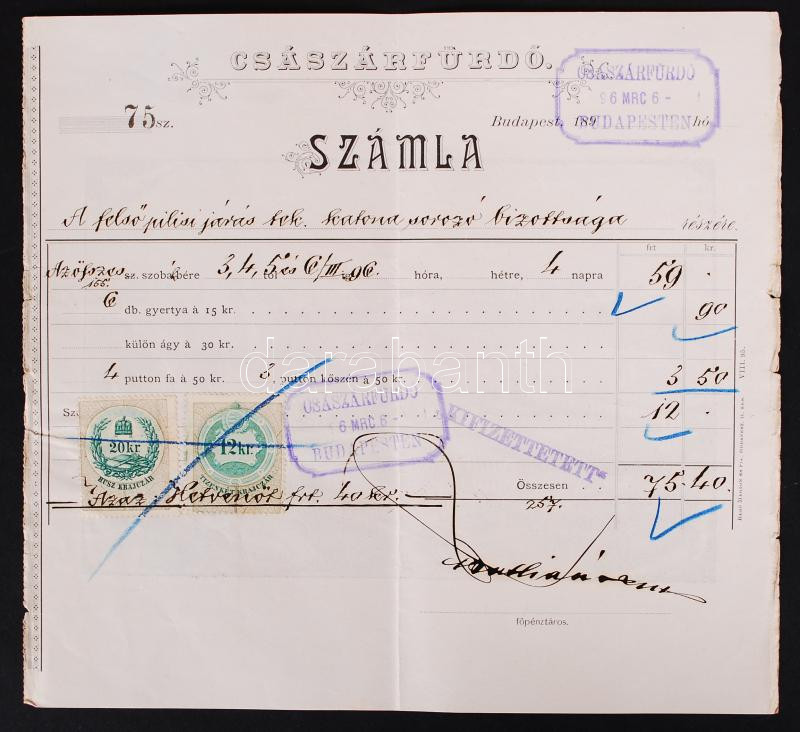 CSÁSZÁRFÜRDŐ.
CSÁSZÁRFÜRDŐ
96 MRC 6 -
BUDAPESTEN
75 sz.
Budapest, 189 hó
SZÁMLA
A felső pilisi járás tek. katona sorozó bizottsága részére.
frt kr.
Az összes sz. szobabére 3, 4, 5 és 6/III 96. hóra, hétre, 4 napra 59 .
6 db. gyertya à 15 kr. 90
külön ágy à 30 kr.
4 putton fa à 50 kr. 3 putton kőszén à 50 kr. 3 50
12 .
CSÁSZÁRFÜRDŐ
6 MRC 6 -
BUDAPESTEN
KIFIZETTETETT
20 kr
HUSZ KRAJCZÁR
12 kr.
TIZENKÉT KRAJCZÁR
Összesen 75 . 40 .
Azaz: Hetvenöt frt. 40 kr.
257.
főpénztáros.
VIII. 95.
darabanth